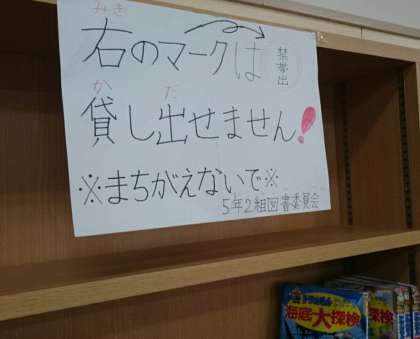 みぎ
右のマークは
禁帯出
か だ
貸し出せません!
※まちがえないで※
5年2組図書委員会
海底大探検
探検